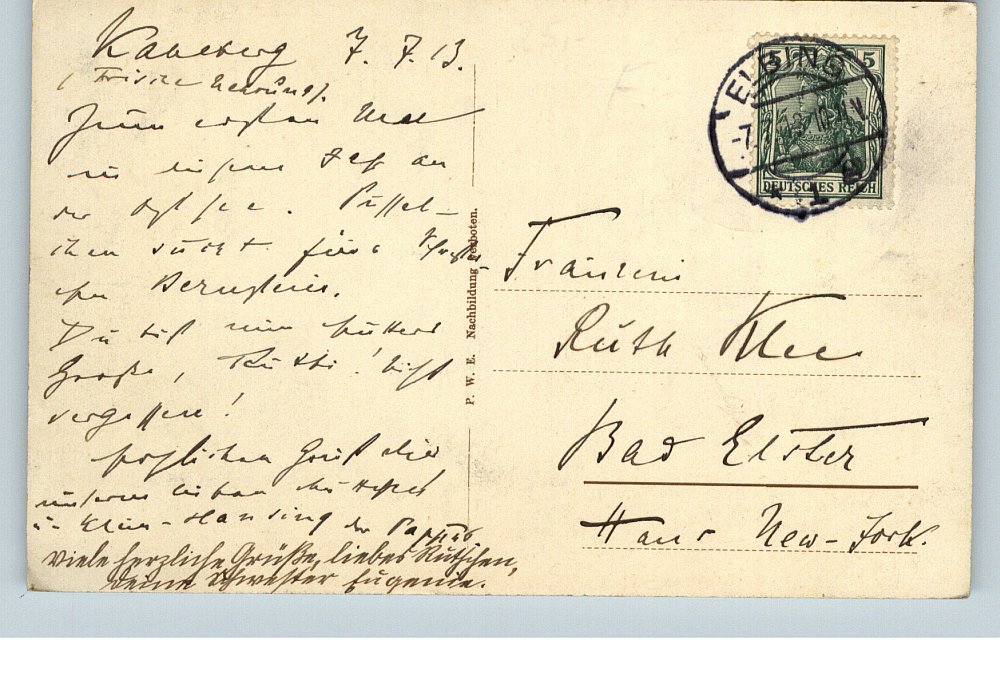 Kahlberg 7.7.13.
(Frische Nehrung).
Zum ersten Mal
in diesem Jahr an
der Ostsee. Püssel-
chen sucht fürs
Bernstein.
Du bist nun
Große, Ruthi! Nicht
vergessen!
Herzlichen Gruß dir
unserem lieben
u. Klein-Hansing der Pappus
Viele herzliche Grüße, liebes Rutchen,
Deine Schwester Eugenie.
P. W. E. Nachbildung verboten.
ELBING
-7.7.13. 10-11 V
* 1 B
5
DEUTSCHES REICH
Fräulein
Ruth Klee
Bad Elster
Haus New-York.